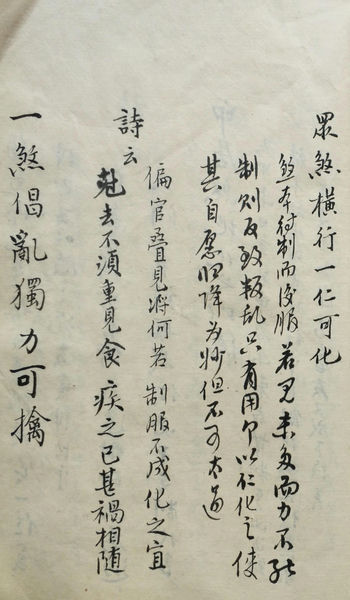 眾煞橫行一仁可化
煞本待制而後服若見未多而力不能
制則反致叛乱只宜用印以仁化之使
其自愿归降为妙但不可太過
詩云
偏官疊見將何若制服不成化之宜
赶去不須重見食疾之已甚禍相随
一煞倡亂獨力可擒